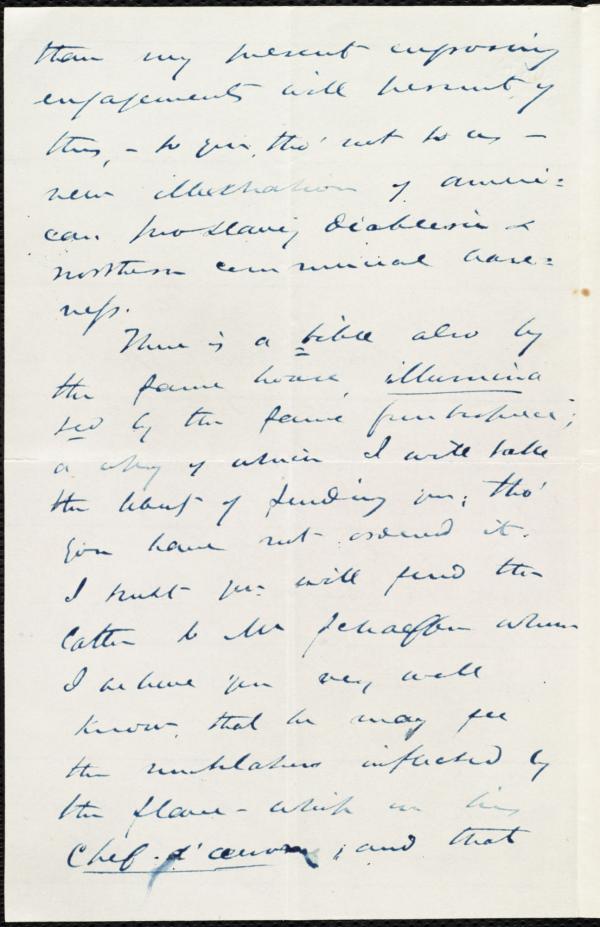 than my present engrossing
engagements will permit of
this, - to you, tho' not to us -
new illustration of Ameri=
can pro slavery diablerie &
northern commercial base=
ness.
There is a bible also by
the same house, illumina
ted by the same frontispiece;
a copy of which I will take
the liberty of sending you; tho'
you have not ordered it.
I trust you will send the
latter to Mr Scheffer whom
I believe you very well
know, that he may see
the mutilation inflicted by
the slave - whip on his
Chef. d'oeuvre; and that